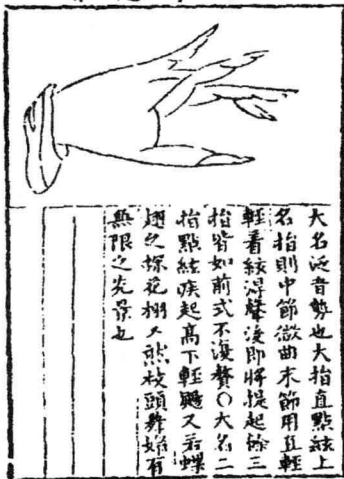 大名泛音勢也大指直點絃上
名指則中節微曲末節用直輕
輕着絃得聲後即將提起餘三
指皆如前式不復贅〇大名二
指點絃疾起高下輕颺又若蝶
翅之探花栩又然枝頭舞始有
無限之光景也